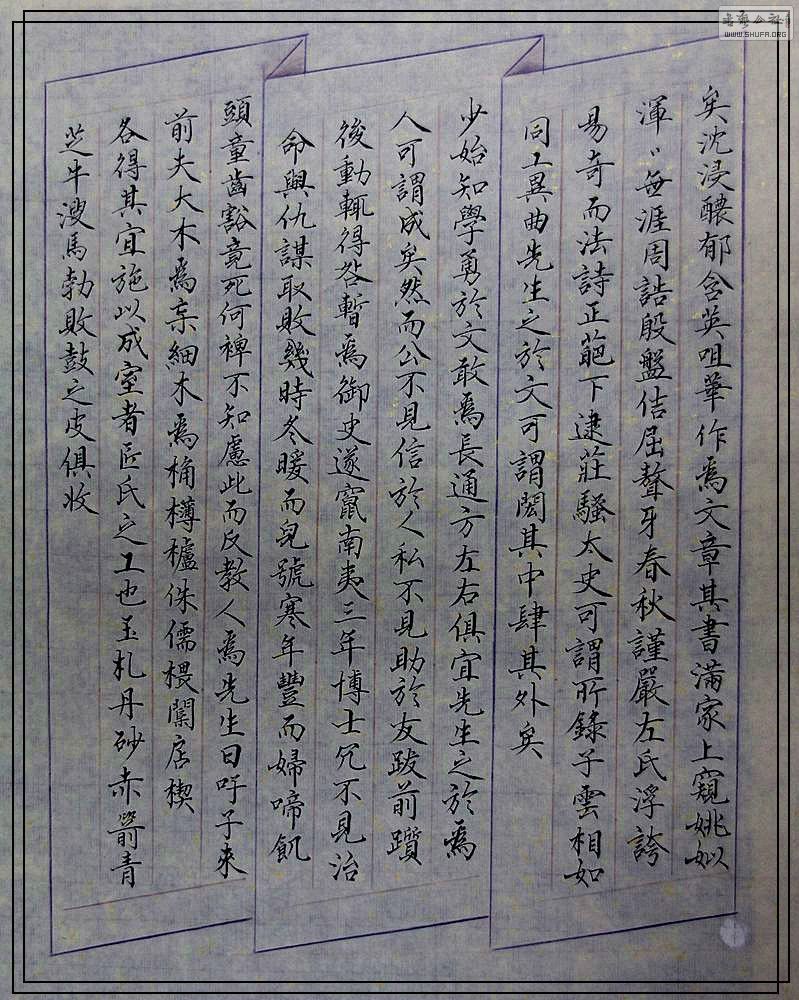 矣沈浸醲郁含英咀華作爲文章其書滿家上窺姚姒
渾〻每涯周誥殷盤佶屈聱牙春秋謹嚴左氏浮誇
易奇而法詩正葩下逮莊騷太史可謂所錄子雲相如
同工異曲先生之於文可謂閎其中肆其外矣
少始知學勇於文敢爲長通方左右俱宜先生之於爲
人可謂成矣然而公不見信於人私不見助於友跋前躓
後動輒得咎暫爲御史遂竄南夷三年博士冗不見治
命與仇謀取敗幾時冬暖而兒號寒年豐而婦啼飢
頭童齒豁竟死何裨不知慮此而反教人爲先生曰吁子來
前夫大木爲杗細木爲桷欂櫨侏儒椳闑扂楔
各得其宜施以成室者匠氏之工也玉札丹砂赤箭青
芝牛溲馬勃敗鼓之皮俱收
WWW.SHUFA.ORG